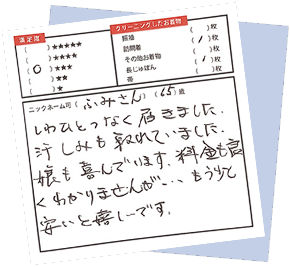 満足度
( )★★★★★
(○)★★★★
( )★★★
( )★★
( )★
クリーニングしたお着物
振袖 ( )枚
訪問着 (/)枚
その他お着物 ( )枚
長じゅばん (/)枚
帯 ( )枚
ニックネーム可(ふみさん)(65)歳
しわひとつなく届きました。
汗じみも取れていました。
娘も喜んでいます。料金も良
くわかりませんが…もう少し
安いと嬉しーです。